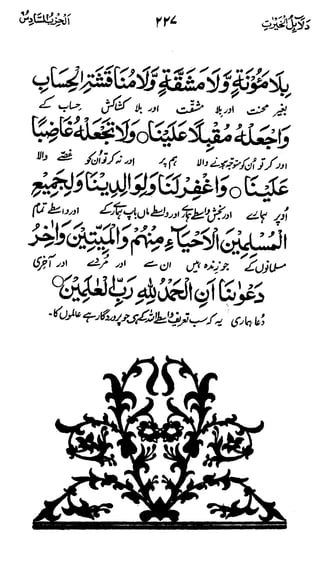 دلائل الخیرات ۲۲۷ الحزب السادس
بِلَا مَئُوْنَةٍ وَّلَا مَشَقَّةٍ وَّلَا مُنَاقَشَةِ الْحِسَابِ
بغیر محنت اور بلا مشقت اور بلا کشاکش حساب کے
وَاجْعَلْهُ مُقْبِلًا عَلَيْنَا وَلَا تَجْعَلْهُ غَاضِبًا
اور کر تو اُن کو متوجہ ہونے والا ہم پر اور نہ کر تو اُن کو غصے والا
عَلَيْنَا وَاغْفِرْ لَنَا وَلِوَالِدِيْنَا وَلِجَمِيْعِ
اُوپر ہمارے اور بخش واسطے ہمارے اور واسطے ماں باپ ہمارے کے اور واسطے تمام
الْمُسْلِمِيْنَ الْاَحْيَاءِ مِنْهُمْ وَالْمَيِّتِيْنَ وَاٰخِرُ
مسلمانوں کے جو زندہ ہیں ان سے اور مُردے اور آخری
دَعْوٰىنَا اَنِ الْحَمْدُ لِلّٰهِ رَبِّ الْعٰلَمِيْنَ
دُعا ہماری یہ کہ سب تعریف واسطے اللہ کے ہی جو پروردگار ہے عالموں کا۔